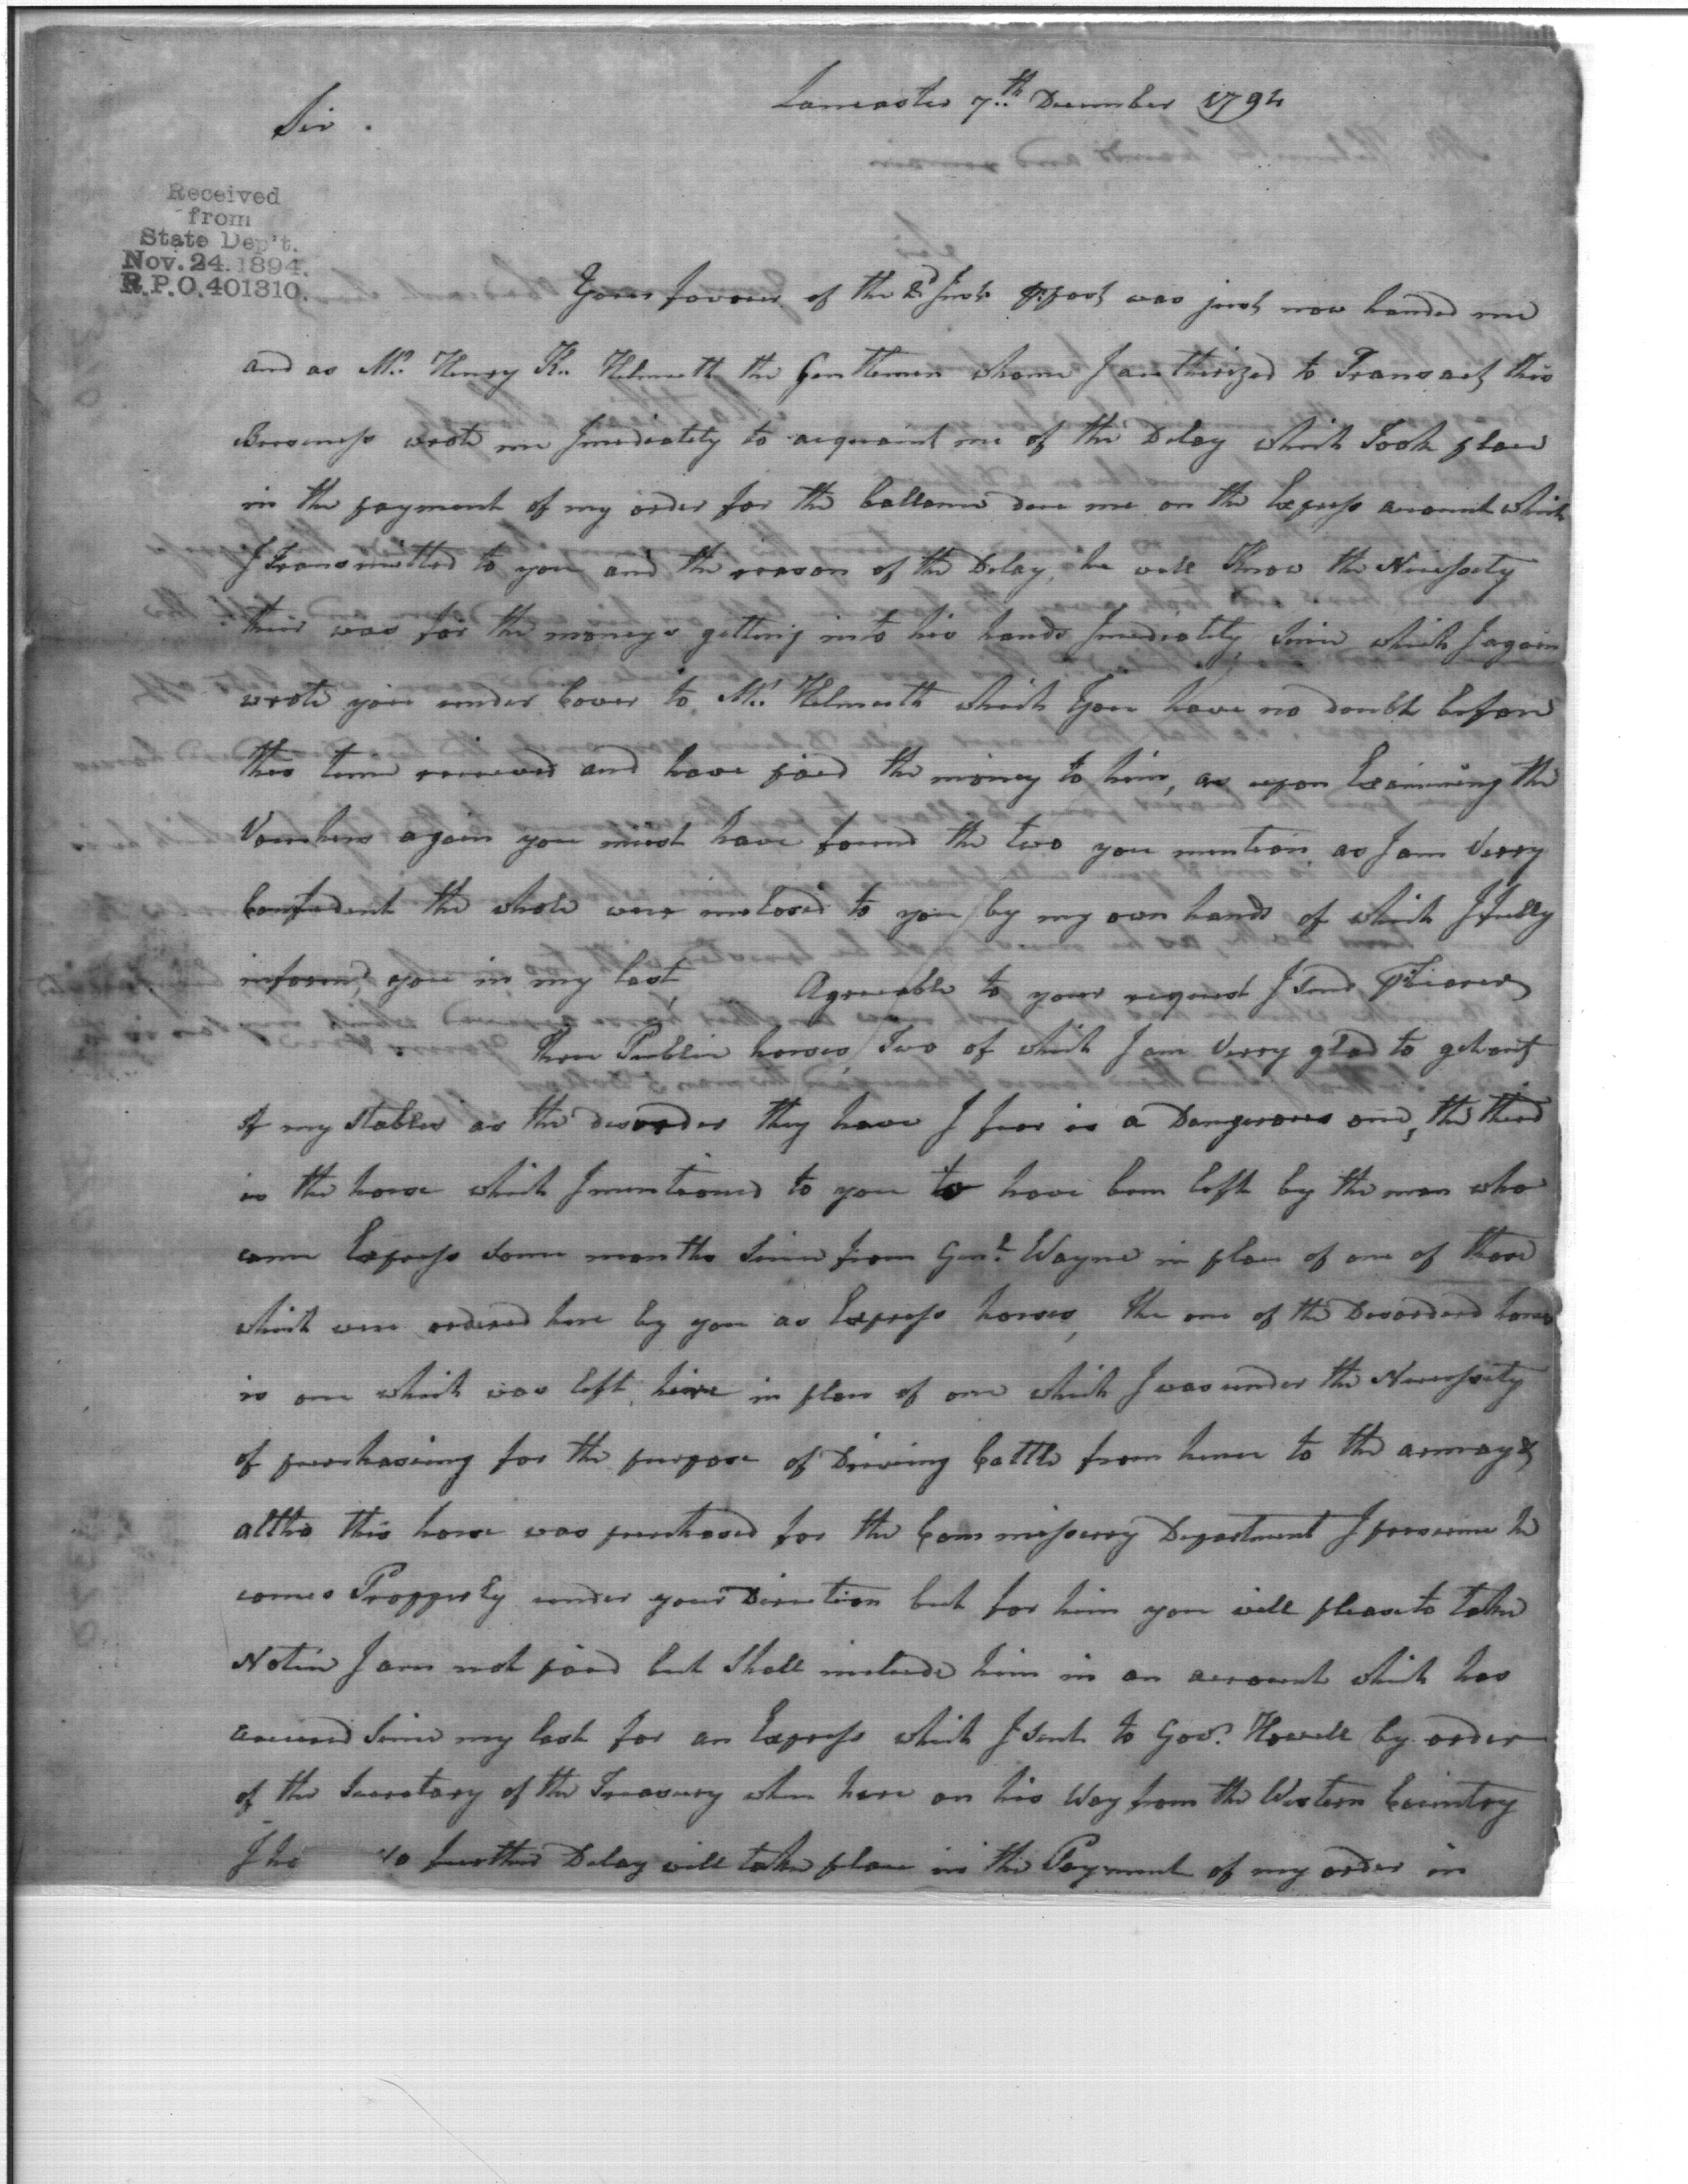 Lancaster 7th December 1794
Sir.
Received
from
State Dep't.
Nov. 24. 1894.
R.P.O. 401310.
Your favour of the 2d Inst p post was just now handed me
and as Mr. Henry K. Helmuth the Gentlemen whome I autherized to Transact this
Bussiness wrote me Imediately to acquaint me of the Delay which Took place
in the payment of my order for the ballance due me on the Express account which
I Transmitted to you and the reason of the Delay, he well Know the Necessity
their was for the moneys getting into his hands Imediately, Since which I again
wrote you under Cover to Mr. Helmuth which You have no doubt before
this time received and have paid the money to him, as upon Examining the
Vouchers again you must have found the two you mention as I am Verry
Confedent the whole were inclosed to you by my own hands of which I fully
informd you in my last, Agreeable to your request I send p Bearer
three Public horses, Two of which I am Verry glad to get out
of my Stables as the desorder they have I fear is a Dangerous one, the third
is the horse which I mentioned to you to have been left by the man who
came Express some months Since from Genl. Wayne in place of one of those
which were ordered here by you as Express horses, the one of the Desorderd horses
is one which was left here in place of one which I was under the Necessity
of purchasing for the purpose of Driving Cattle from hence to the armay &
altho this horse was purchased for the Commisserry Department I presume he
comes Propperly under your Direction but for him you will please to take
Notice I am not paid but Shall include him in an account which has
accrued Since my last for an Express which I sent to Govr. Howell by order
of the Secretary of the Treasury when here on his Way from the Western Country
I ho further Delay will take place in the Payment of my order in